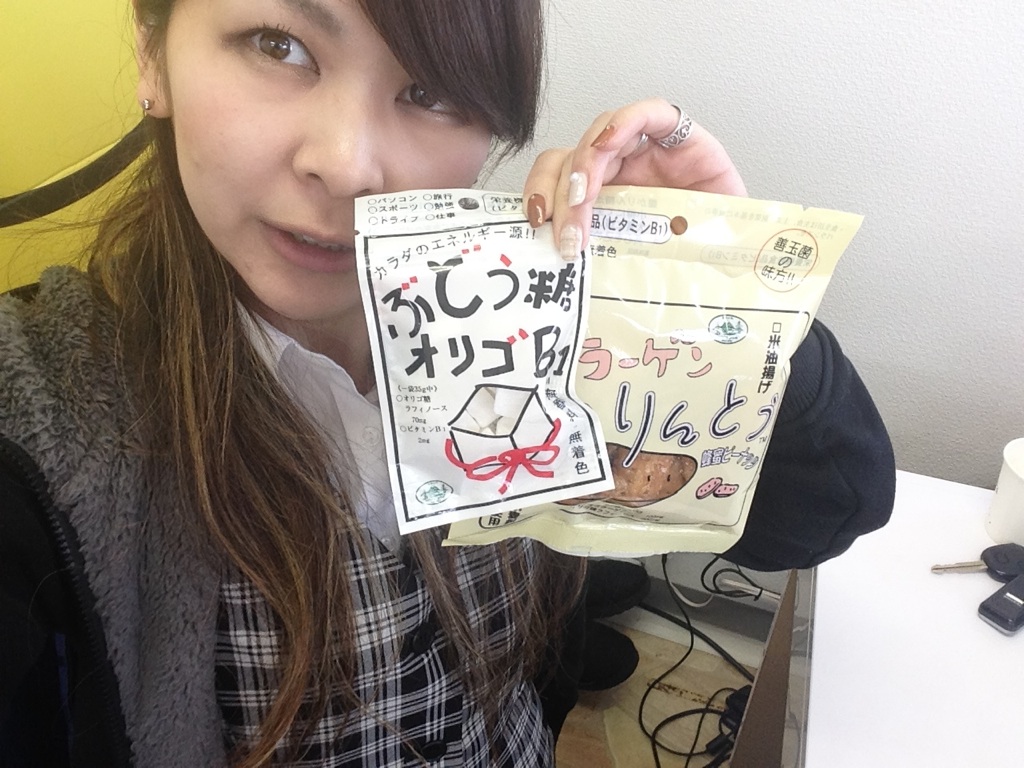 ○パソコン ○旅行
○スポーツ ○勉強
○ドライブ ○仕事
カラダのエネルギー源!!
ぶどう糖
オリゴB1
(一袋35g中)
○オリゴ糖
ラフィノース
70mg
○ビタミンB1
2mg
無着色
品(ビタミンB1)
無着色
善玉菌
の
味方!!
□米油揚げ
ラーゲン
りんとう
TM
蜂蜜ピーナッツ